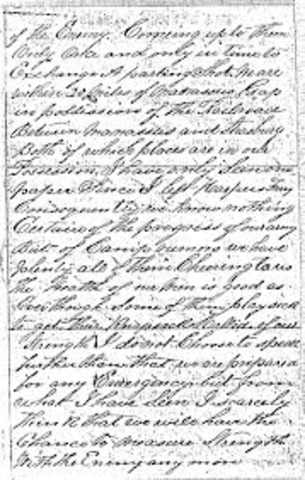 of the Enemy. Comeing up to them
Only Once and only in time to
Exchange A parting Shot. We are
within 20 miles of Manassus Gap
in possession of the Railroad
Between Manassus and Strasburg
Both of which places are in our
Possession. I have only Seen one
paper Since I left Harpers Ferry
Consequently we know nothing
Certain of the progress of our army
But of Camp rumors we have
plenty all of them Cheering to us
the health of our men is good as
Some of them played
to get their
Strength I do not Choose to speak
further than that we are prepared
for any Emergency but from
what I have Seen I scarcely
think that we will have the
Chance to measure Strength
With the Enemy any more